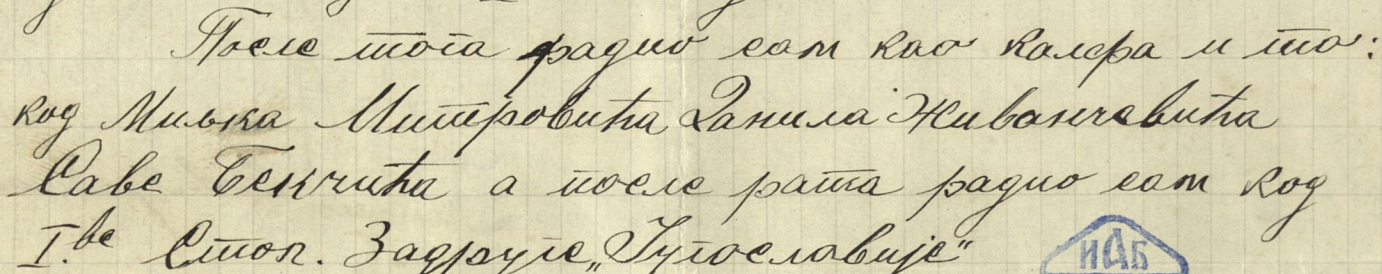 После тога радио сам као калфа и то:
код Миљка Митровића Данила Живанчевића
Саве Бекчића а после рата радио сам код
I.ве Стол. Задруге „Југославије"
ИАБ